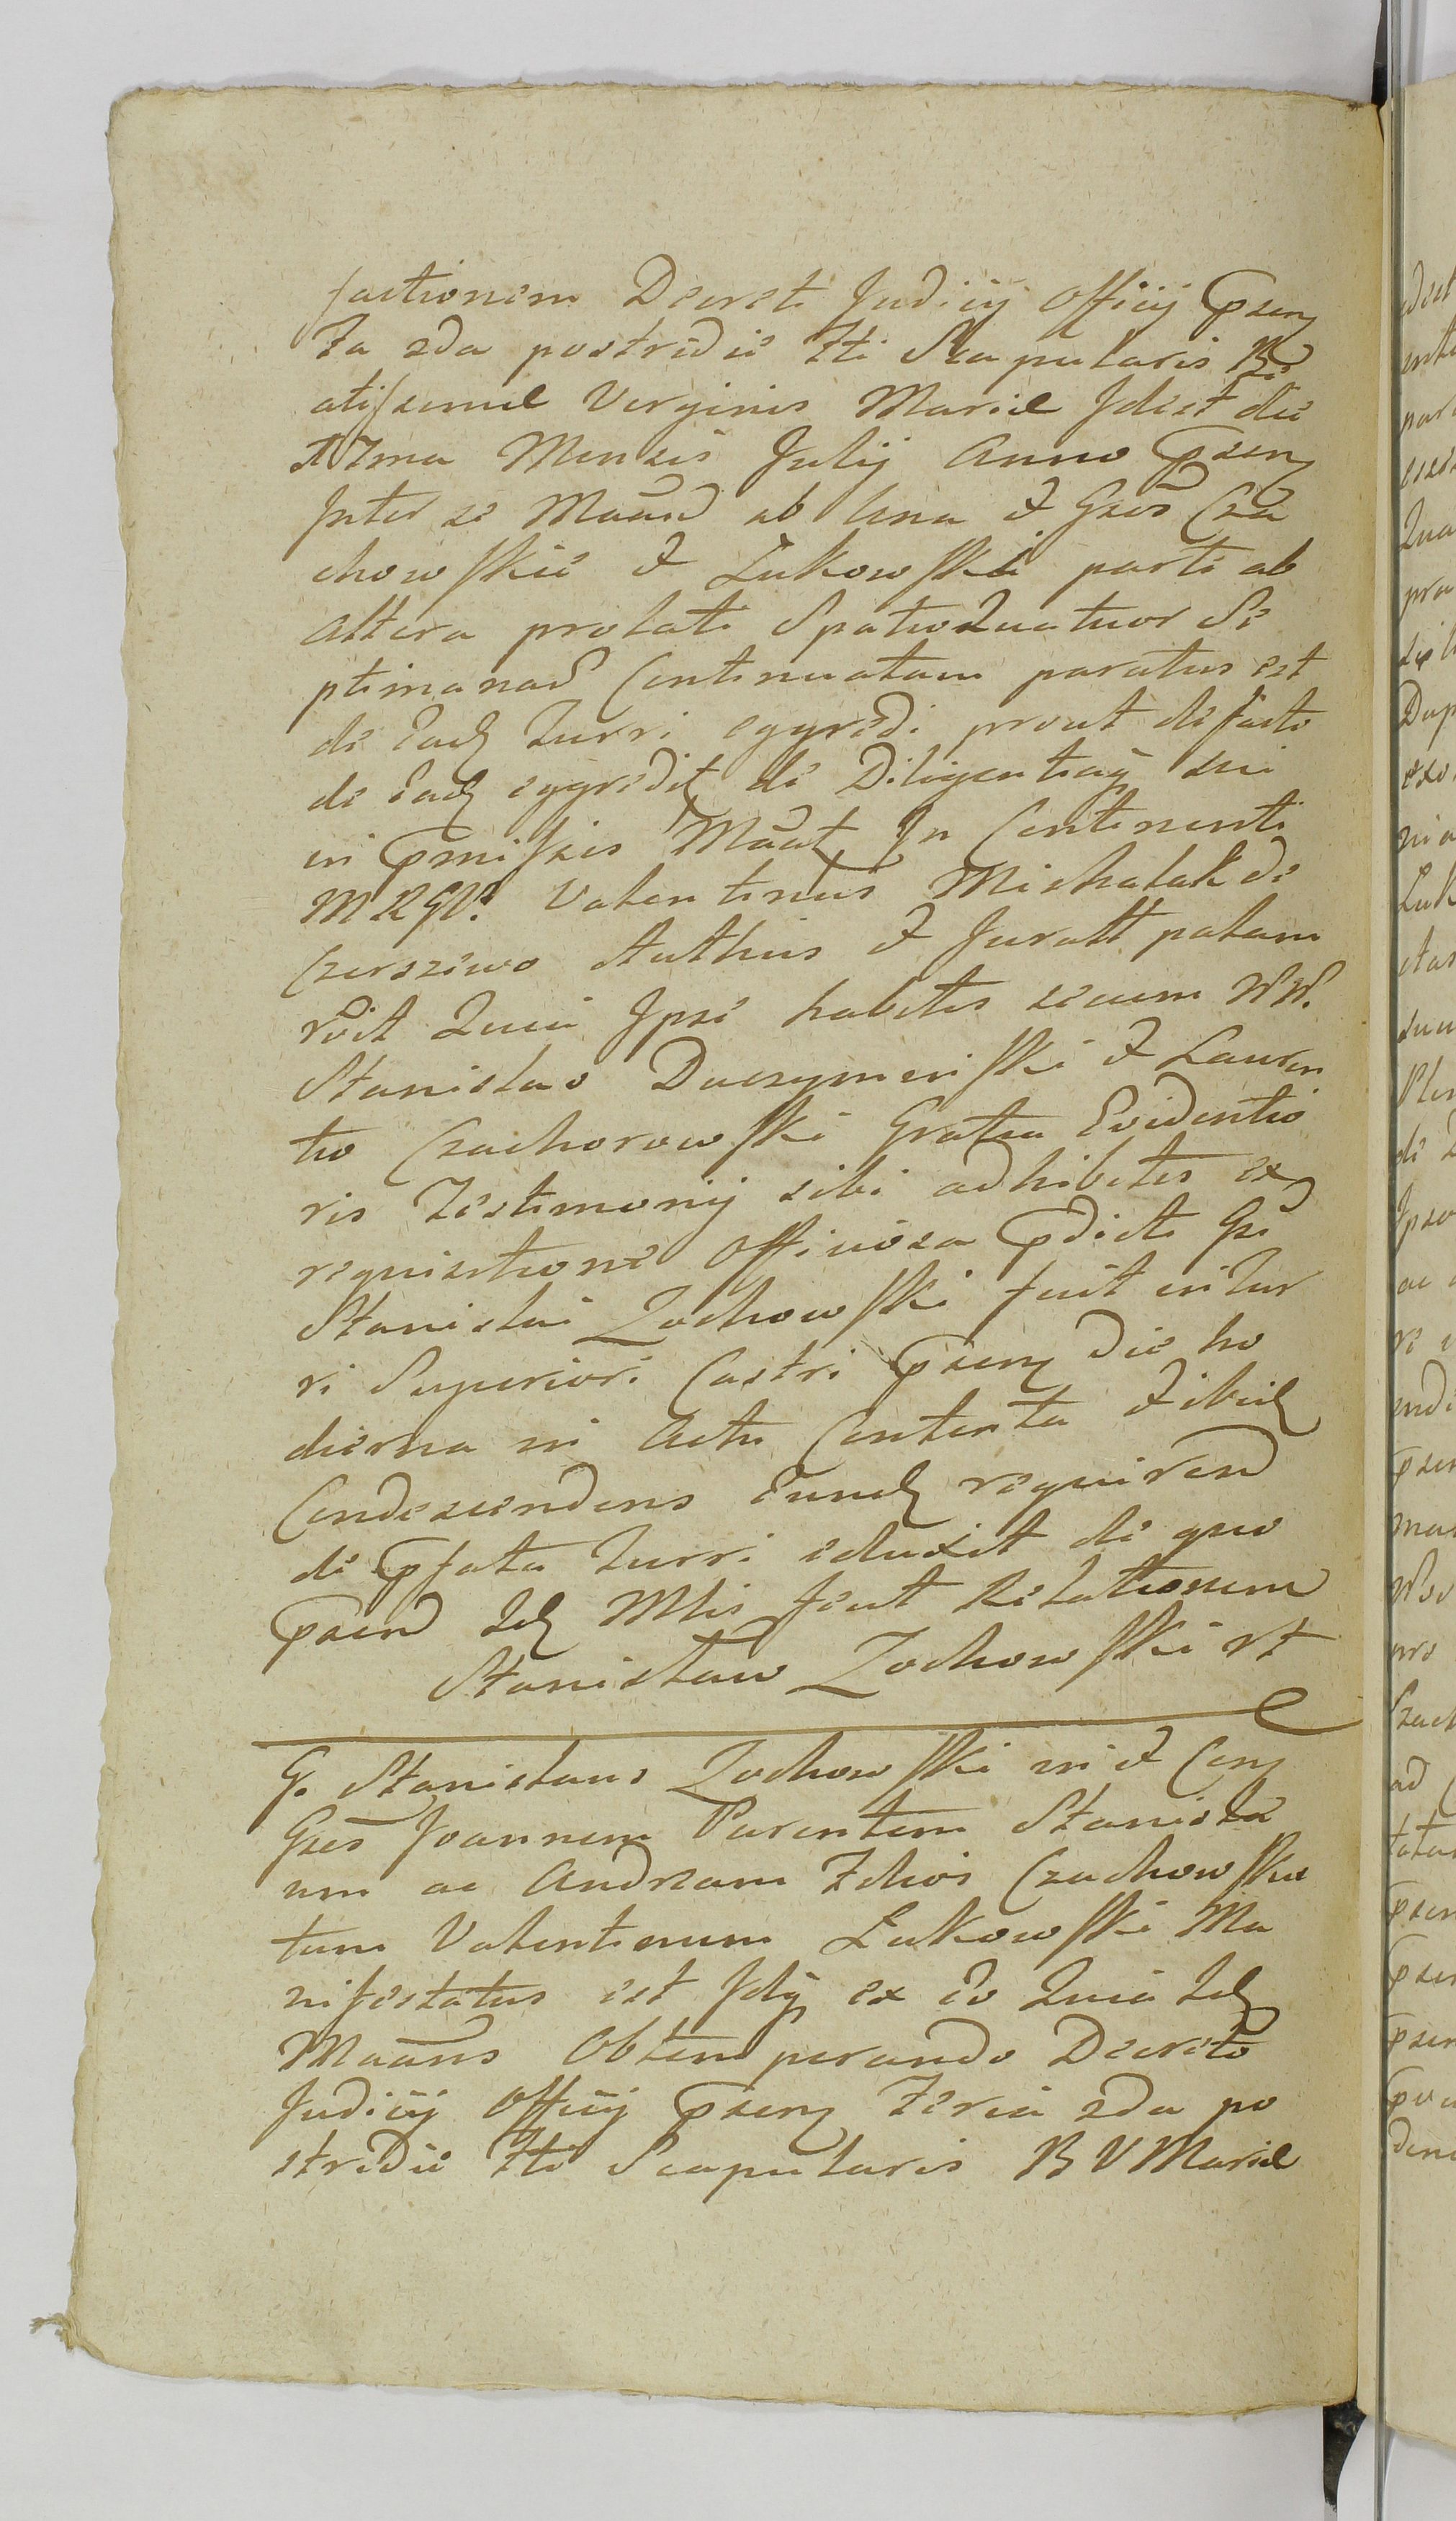 factionem Decreti Judicij Officij Psen
Fa 2da postridie Fti Scapularis Be
atissimae Virginis Mariae Idest die
17ma Mensis Julij Anno Psen
Inter se Maand ab una et Gsos Cza
chowskie et Łukowski parte ab
altera prolati Spatio Quatuor Se
ptimanad Continuatam paratus est
de Ead Turri egredi prout de facto
de Ead egredit de Diligentia sui
in Pmissis Maat In Continenti
Valentinus Michalak de
Czerszewo Authus et Juratt palam
rdit Quia Ipse habitis secum NN.
Stanislao Duczyminski et Lauren
tio Czachorowski Gratia Evidentio
ris Testimonij sibi adhibitis ex
requisitione Officiosa Pdicti Gsi
Stanislai Zochowski fuit in Tur
ri Superiori Castri Psen die ho
dierna in Actu Contenta et ibid
Condescendens Eund requirend
de Pfata Turri eduxit de quo
Psend Id Mlis fecit Relationem
Stanisław Zochowski
G. Stanislaus Zochowski in et Con
Gsos Joannem Parentem Stanisla
um ac Andream Filios Czachowskie
tum Valentinum Łukowski Ma
nifestatus est Idq ex Eo Quia Id
Maans Obtemperando Decreto
Judicij Officij Psen Feria 2da po
stridie Fti Scapularis B V Mariae